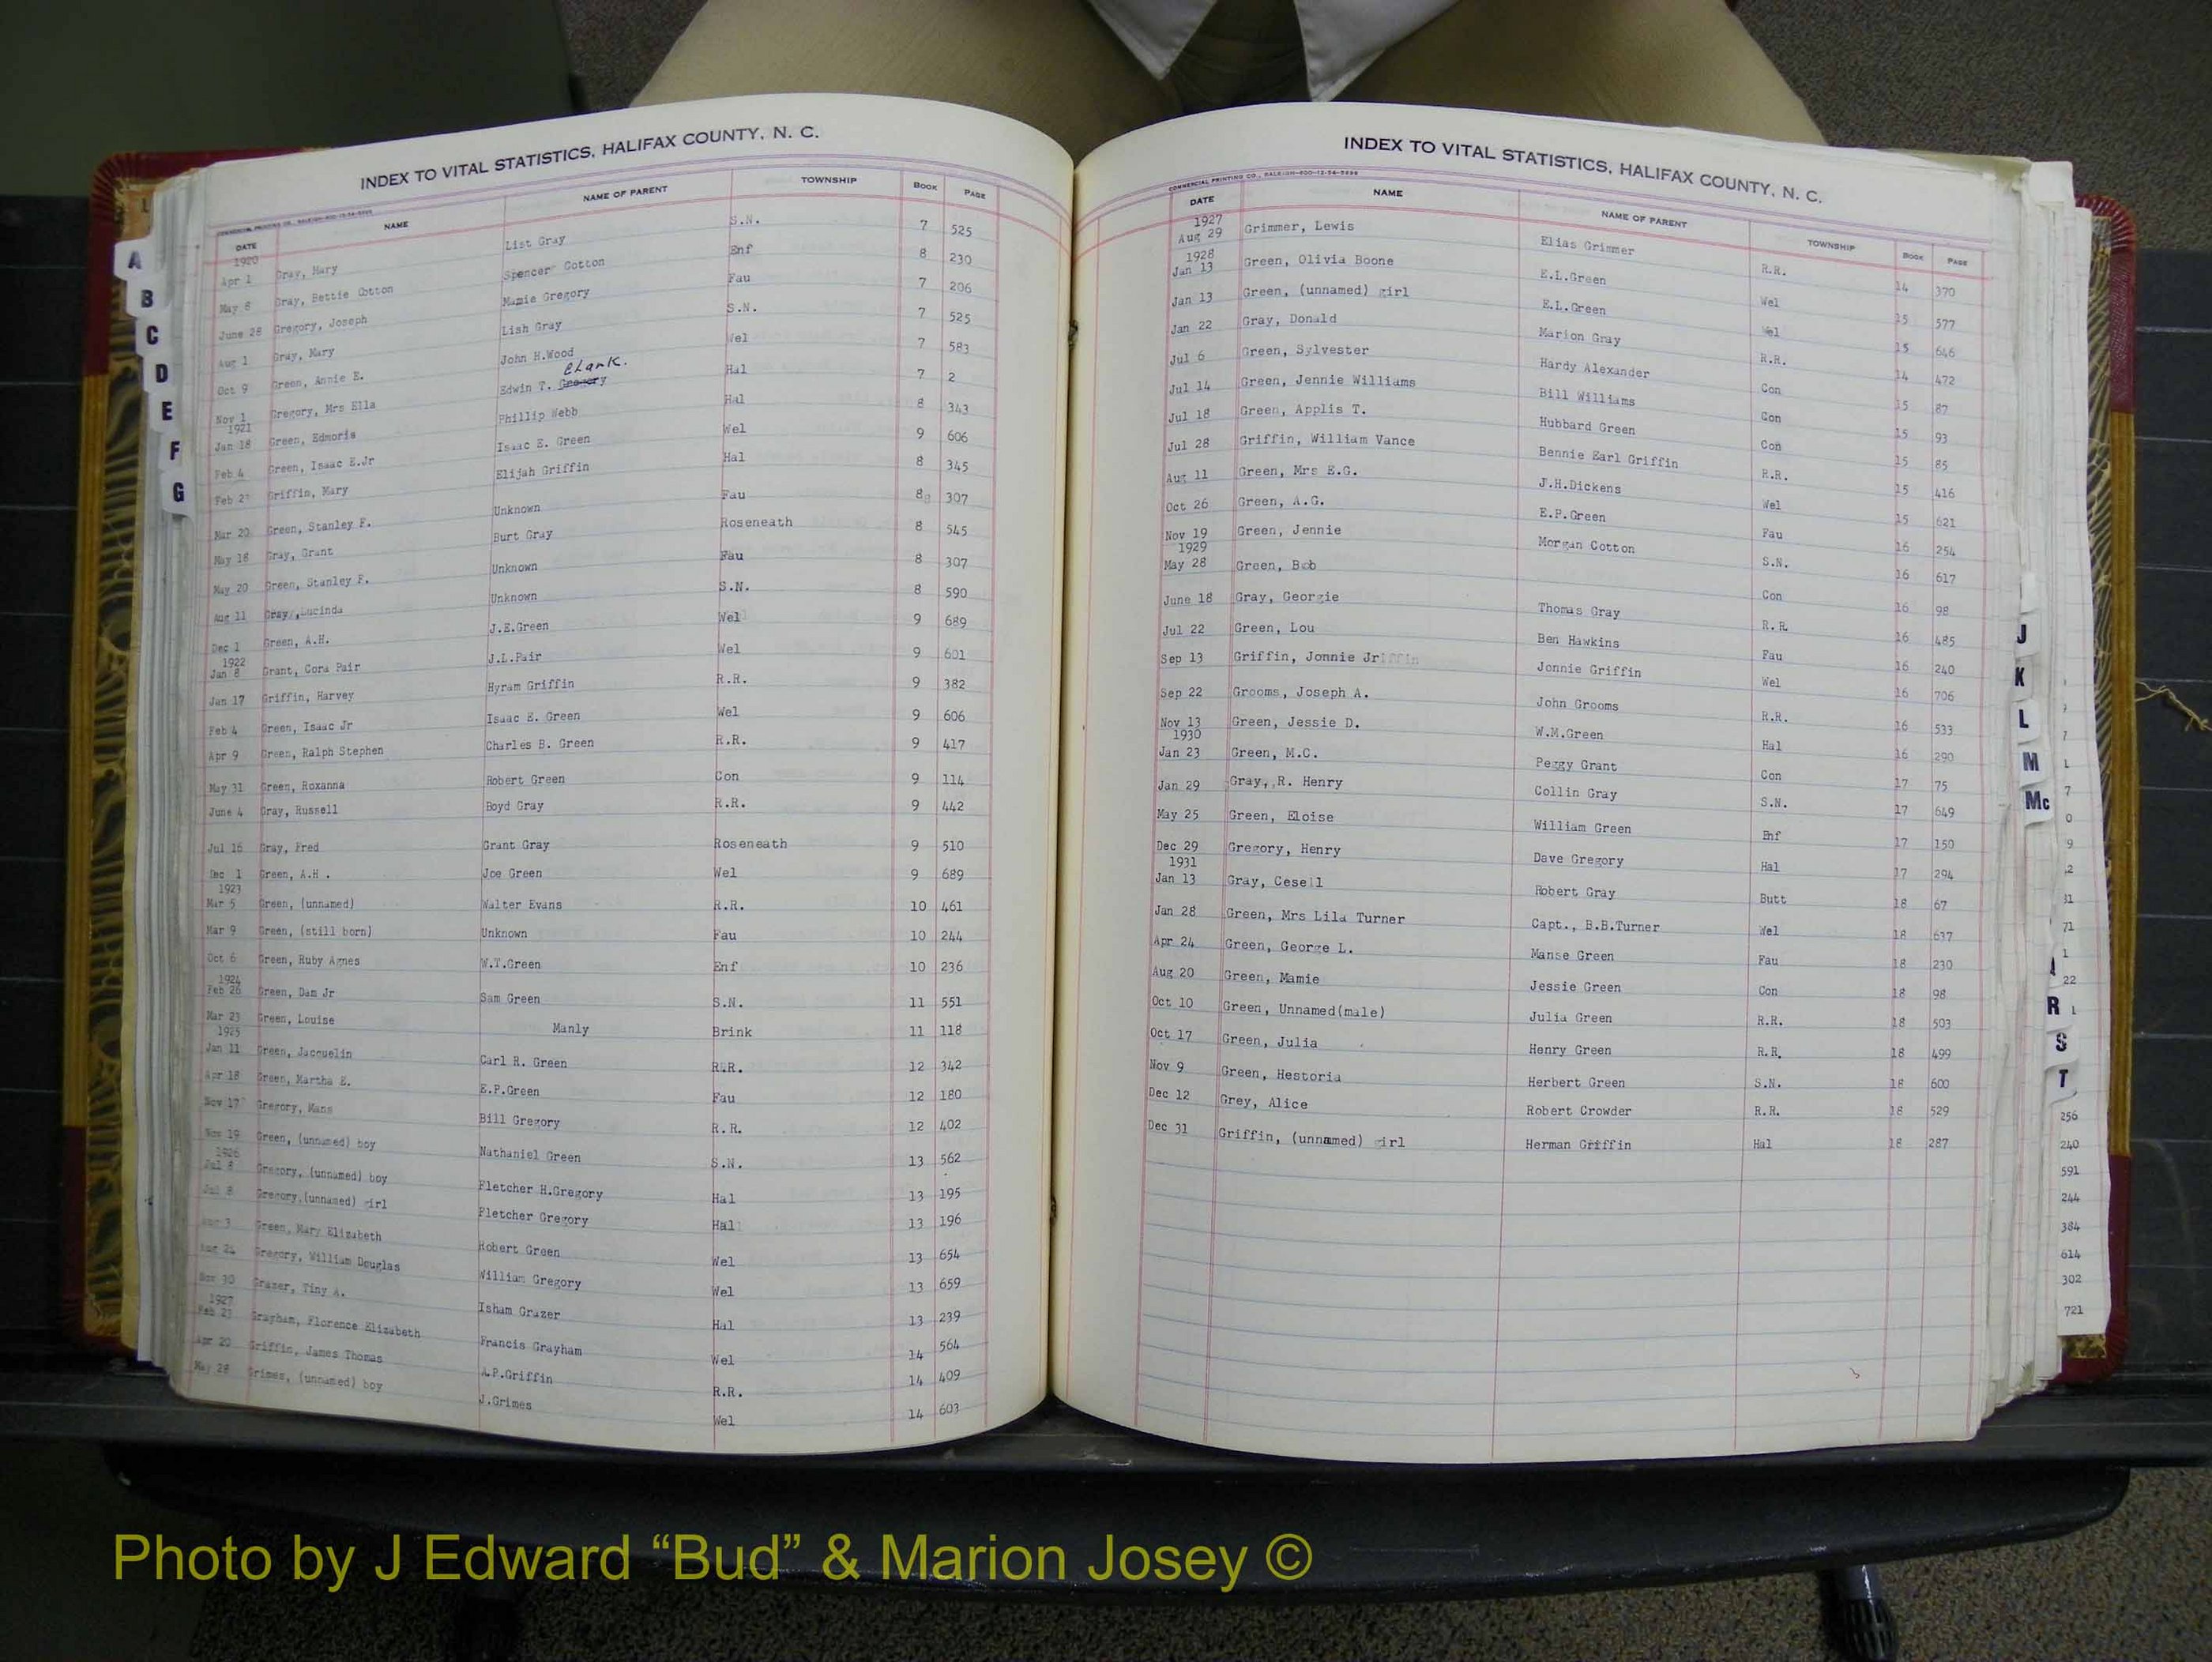 INDEX TO VITAL STATISTICS, HALIFAX COUNTY, N. C.
COMMERCIAL PRINTING CO., RALEIGH
DATE NAME NAME OF PARENT TOWNSHIP BOOK PAGE
1920
Apr 1 Gray, Mary List Gray S.N. 7 525
May 8 Gray, Bettie Cotton Spencer Cotton Enf 8 230
June 28 Gregory, Joseph Mamie Gregory Fau 7 206
Aug 1 Gray, Mary Lish Gray S.N. 7 525
Oct 9 Green, Annie E. John H.Wood Wel 7 583
Clark.
Nov 1 Gregory, Mrs Ella Edwin T. Gregory Hal 7 2
1921
Jan 18 Green, Edmoria Phillip Webb Hal 8 343
Feb 4 Green, Isaac E.Jr Isaac E. Green Wel 9 606
Feb Griffin, Mary Elijah Griffin Hal 8 345
Mar 20 Green, Stanley F. Unknown Fau 8 307
May 18 Gray, Grant Burt Gray Roseneath 8 545
May 20 Green, Stanley F. Unknown Fau 8 307
Aug 11 Gray, Lucinda Unknown S.N. 8 590
Dec 1 Green, A.H. J.E.Green Wel 9 689
1922
Jan 8 Grant, Cora Pair J.L.Pair Wel 9 601
Jan 17 Griffin, Harvey Hyram Griffin R.R. 9 382
Feb 4 Green, Isaac Jr Isaac E. Green Wel 9 606
Apr 9 Green, Ralph Stephen Charles B. Green R.R. 9 417
May 31 Green, Roxanna Robert Green Con 9 114
June 4 Gray, Russell Boyd Gray R.R. 9 442
Jul 16 Gray, Fred Grant Gray Roseneath 9 510
Dec 1 Green, A.H . Joe Green Wel 9 689
1923
Mar 5 Green, (unnamed) Walter Evans R.R. 10 461
Mar 9 Green, (still born) Unknown Fau 10 244
Oct 6 Green, Ruby Agnes W.T.Green Enf 10 236
1924
Feb 26 Green, Dam Jr Sam Green S.N. 11 551
Mar 23 Green, Louise Manly Brink 11 118
1925
Jan 11 Green, Jacquelin Carl R. Green R.R. 12 342
Apr 18 Green, Martha E. E.P.Green Fau 12 180
Nov 17 Gregory, Mans Bill Gregory R.R. 12 402
Nov 19 Green, (unnamed) boy Nathaniel Green S.N. 13 562
1926
Jul 8 Gregory, (unnamed) boy Fletcher H.Gregory Hal 13 195
Jul 8 Gregory,(unnamed) girl Fletcher Gregory Hal 13 196
3 Green, Mary Elizabeth Robert Green Wel 13 654
Aug 24 Gregory, William Douglas William Gregory Wel 13 659
Nov 30 Grazer, Tiny A. Isham Grazer Hal 13 239
1927
Feb 23 Grayham, Florence Elizabeth Francis Grayham Wel 14 564
Apr 20 Griffin, James Thomas A.P.Griffin R.R. 14 409
May 28 Grimes, (unnamed) boy J.Grimes Wel 14 603
A
B
C
D
E
F
G
INDEX TO VITAL STATISTICS, HALIFAX COUNTY, N. C.
COMMERCIAL PRINTING CO., RALEIGH
DATE NAME NAME OF PARENT TOWNSHIP BOOK PAGE
1927
Aug 29 Grimmer, Lewis Elias Grimmer R.R. 14 370
1928
Jan 13 Green, Olivia Boone E.L.Green Wel 15 577
Jan 13 Green, (unnamed) girl E.L.Green Wel 15 646
Jan 22 Gray, Donald Marion Gray R.R. 14 472
Jul 6 Green, Sylvester Hardy Alexander Con 15 87
Jul 14 Green, Jennie Williams Bill Williams Con 15 93
Jul 18 Green, Applis T. Hubbard Green Con 15 85
Jul 28 Griffin, William Vance Bennie Earl Griffin R.R. 15 416
Aug 11 Green, Mrs E.G. J.H.Dickens Wel 15 621
Oct 26 Green, A.G. E.P.Green Fau 16 254
Nov 19 Green, Jennie Morgan Cotton S.N. 16 617
1929
May 28 Green, Bob Con 16 98
June 18 Gray, Georgie Thomas Gray R.R. 16 485
Jul 22 Green, Lou Ben Hawkins Fau 16 240
Sep 13 Griffin, Jonnie Jr Jonnie Griffin Wel 16 706
Sep 22 Grooms, Joseph A. John Grooms R.R. 16 533
Nov 13 Green, Jessie D. W.M.Green Hal 16 290
1930
Jan 23 Green, M.C. Peggy Grant Con 17 75
Jan 29 Gray, R. Henry Collin Gray S.N. 17 649
May 25 Green, Eloise William Green Enf 17 150
Dec 29 Gregory, Henry Dave Gregory Hal 17 294
1931
Jan 13 Gray, Cesell Robert Gray Butt 18 67
Jan 28 Green, Mrs Lila Turner Capt., B.B.Turner Wel 18 637
Apr 24 Green, George L. Manse Green Fau 18 230
Aug 20 Green, Mamie Jessie Green Con 18 98
Oct 10 Green, Unnamed(male) Julia Green R.R. 18 503
Oct 17 Green, Julia Henry Green R.R. 18 499
Nov 9 Green, Hestoria Herbert Green S.N. 18 600
Dec 12 Grey, Alice Robert Crowder R.R. 18 529
Dec 31 Griffin, (unnamed) girl Herman Griffin Hal 18 287
J
K
L
M
Mc
R
S
T
256
240
591
244
384
614
302
721
Photo by J Edward “Bud” & Marion Josey ©